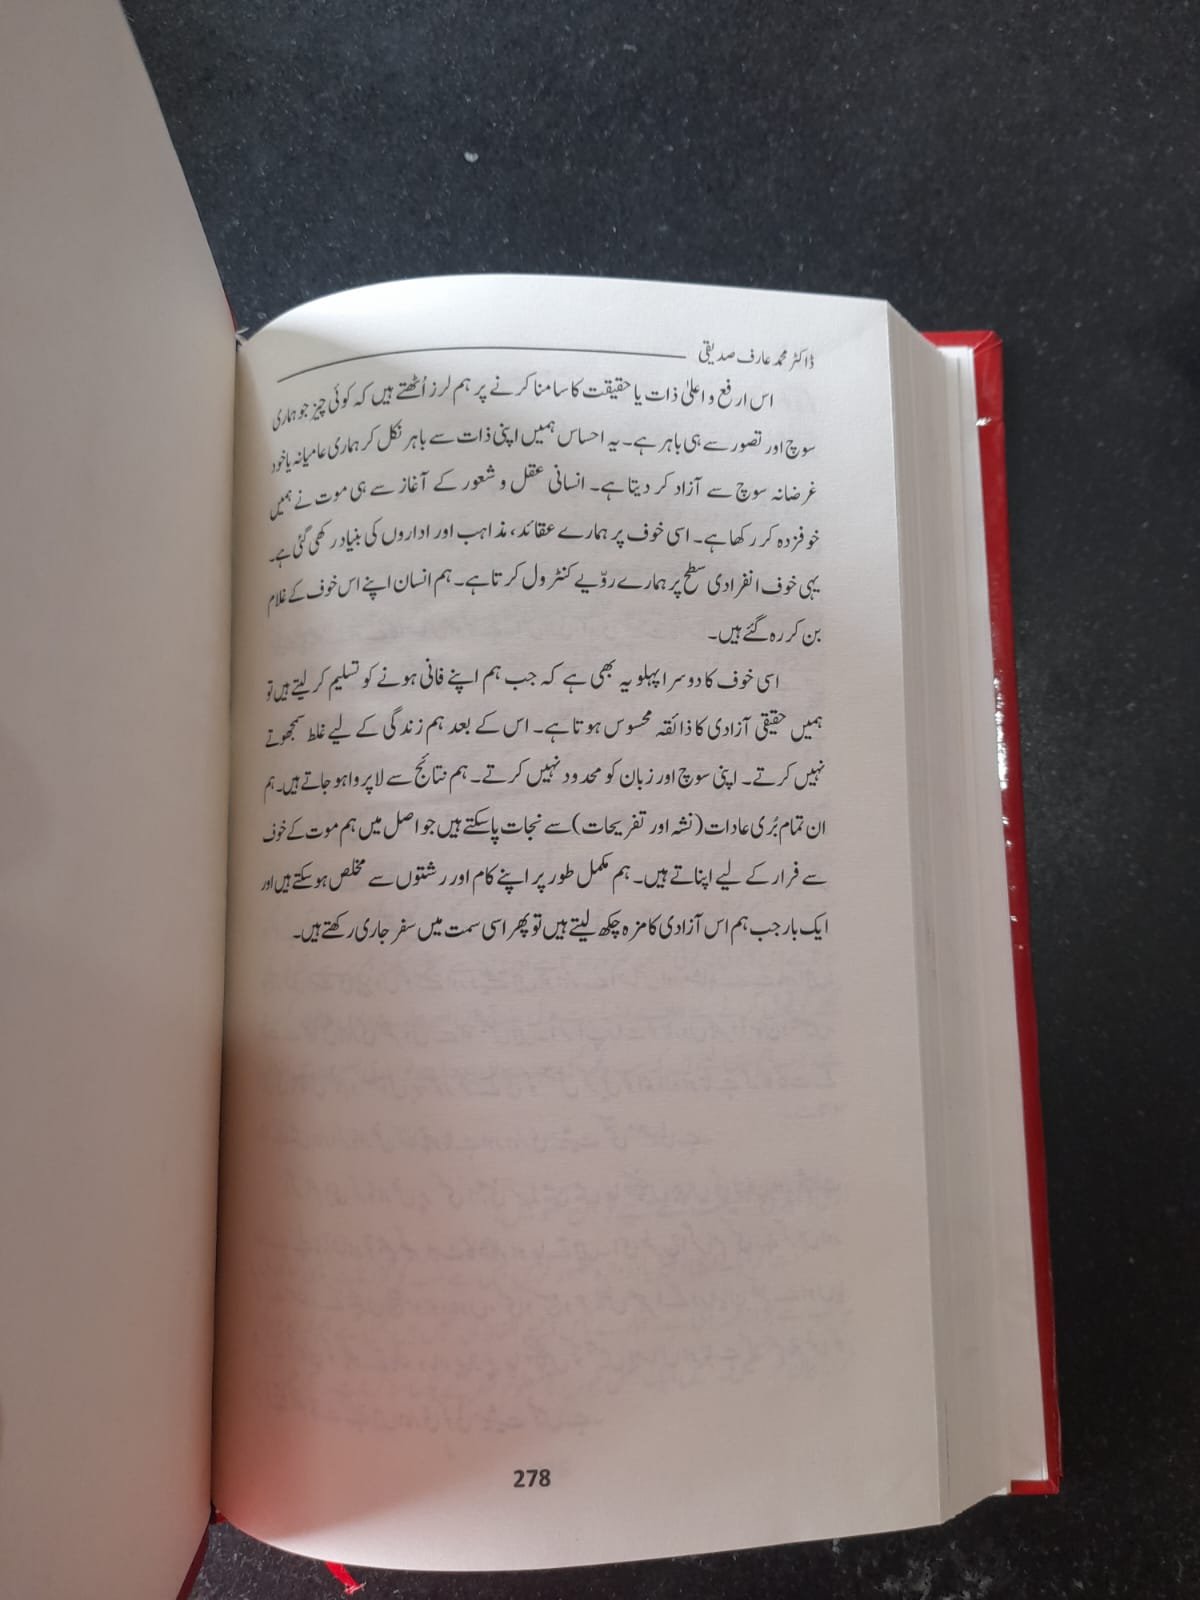 ڈاکٹر محمد عارف صدیقی
اس ارفع و اعلیٰ ذات یا حقیقت کا سامنا کرنے پر ہم لرز اُٹھتے ہیں کہ کوئی چیز جو ہماری
سوچ اور تصور سے ہی باہر ہے۔ یہ احساس ہمیں اپنی ذات سے باہر نکل کر ہماری عامیانہ یا خود
غرضانہ سوچ سے آزاد کر دیتا ہے۔ انسانی عقل و شعور کے آغاز سے ہی موت نے ہمیں
خوفزدہ کر رکھا ہے۔ اسی خوف پر ہمارے عقائد، مذاہب اور اداروں کی بنیاد رکھی گئی ہے۔
یہی خوف انفرادی سطح پر ہمارے رویّے کنٹرول کرتا ہے۔ ہم انسان اپنے اس خوف کے غلام
بن کر رہ گئے ہیں۔
اسی خوف کا دوسرا پہلو یہ بھی ہے کہ جب ہم اپنے فانی ہونے کو تسلیم کر لیتے ہیں تو
ہمیں حقیقی آزادی کا ذائقہ محسوس ہوتا ہے۔ اس کے بعد ہم زندگی کے لیے غلط سمجھوتے
نہیں کرتے۔ اپنی سوچ اور زبان کو محدود نہیں کرتے۔ ہم نتائج سے لاپروا ہو جاتے ہیں۔ ہم
ان تمام بُری عادات (نشہ اور تفریحات) سے نجات پا سکتے ہیں جو اصل میں ہم موت کے خوف
سے فرار کے لیے اپناتے ہیں۔ ہم مکمل طور پر اپنے کام اور رشتوں سے مخلص ہو سکتے ہیں اور
ایک بار جب ہم اس آزادی کا مزہ چکھ لیتے ہیں تو پھر اسی سمت میں سفر جاری رکھتے ہیں۔
278